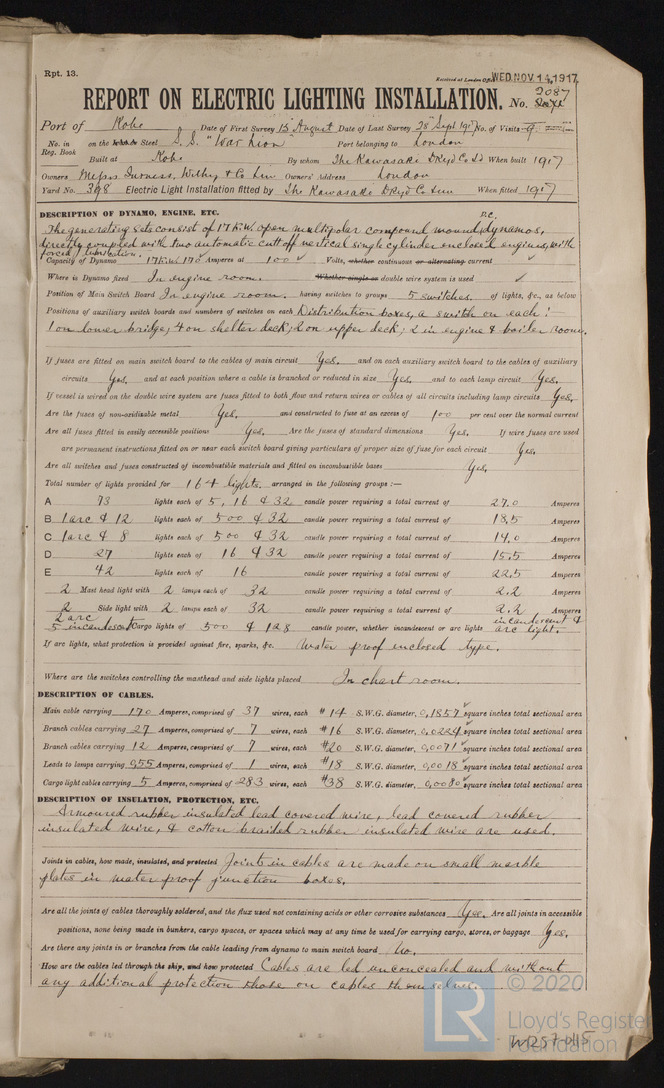 Rpt. 13.
Received at London Office WED. NOV. 14. 1917
REPORT ON ELECTRIC LIGHTING INSTALLATION. No. 2087
Port of Kobe Date of First Survey 15 August Date of Last Survey 28 Sept 1917 No. of Visits 9
No. in Reg. Book on the Iron or Steel S.S. "War Lion" Port belonging to London
Built at Kobe By whom The Kawasaki DKyd Co Ld When built 1917
Owners Messrs Furness, Withy & Co Lim Owners' Address London
Yard No. 398 Electric Light Installation fitted by The Kawasaki DKyd Co Lim When fitted 1917
DESCRIPTION OF DYNAMO, ENGINE, ETC.
The generating sets consist of 17 K.W. open multipolar compound wound D.C. dynamos,
directly coupled with two automatic cutt off vertical single cylinder enclosed engines, with
forced lubrication.
Capacity of Dynamo 17 K.W. 170 Amperes at 100 Volts, whether continuous or alternating current
Where is Dynamo fixed In engine room. Whether single or double wire system is used
Position of Main Switch Board In engine room. having switches to groups 5 switches. of lights, &c., as below
Positions of auxiliary switch boards and numbers of switches on each Distribution boxes, a switch on each :-
1 on lower bridge; 4 on shelter deck; 2 on upper deck; 2 in engine & boiler room.
If fuses are fitted on main switch board to the cables of main circuit Yes. and on each auxiliary switch board to the cables of auxiliary
circuits Yes. and at each position where a cable is branched or reduced in size Yes. and to each lamp circuit Yes.
If vessel is wired on the double wire system are fuses fitted to both flow and return wires or cables of all circuits including lamp circuits Yes.
Are the fuses of non-oxidizable metal Yes. and constructed to fuse at an excess of 100 per cent over the normal current
Are all fuses fitted in easily accessible positions Yes. Are the fuses of standard dimensions Yes. If wire fuses are used
are permanent instructions fitted on or near each switch board giving particulars of proper size of fuse for each circuit Yes.
Are all switches and fuses constructed of incombustible materials and fitted on incombustible bases Yes.
Total number of lights provided for 164 lights. arranged in the following groups :—
A 73 lights each of 5, 16 & 32 candle power requiring a total current of 27.0 Amperes
B 1 arc & 12 lights each of 500 & 32 candle power requiring a total current of 18.5 Amperes
C 1 arc & 8 lights each of 500 & 32 candle power requiring a total current of 14.0 Amperes
D 27 lights each of 16 & 32 candle power requiring a total current of 15.5 Amperes
E 42 lights each of 16 candle power requiring a total current of 22.5 Amperes
2 Mast head light with 2 lamps each of 32 candle power requiring a total current of 2.2 Amperes
2 Side light with 2 lamps each of 32 candle power requiring a total current of 2.2 Amperes
2 arc
5 incandescent Cargo lights of 500 & 128 candle power, whether incandescent or arc lights incandescent & arc light.
If arc lights, what protection is provided against fire, sparks, &c. Water proof enclosed type.
Where are the switches controlling the masthead and side lights placed In chart room.
DESCRIPTION OF CABLES.
Main cable carrying 170 Amperes, comprised of 37 wires, each #14 S.W.G. diameter, 0.1857 square inches total sectional area
Branch cables carrying 27 Amperes, comprised of 7 wires, each #16 S.W.G. diameter, 0.0224 square inches total sectional area
Branch cables carrying 12 Amperes, comprised of 7 wires, each #20 S.W.G. diameter, 0.0071 square inches total sectional area
Leads to lamps carrying 0.55 Amperes, comprised of 1 wires, each #18 S.W.G. diameter, 0.0018 square inches total sectional area
Cargo light cables carrying 5 Amperes, comprised of 283 wires, each #38 S.W.G. diameter, 0.0080 square inches total sectional area
DESCRIPTION OF INSULATION, PROTECTION, ETC.
Armoured rubber insulated lead covered wire, lead covered rubber
insulated wire, & cotton braided rubber insulated wire are used.
Joints in cables, how made, insulated, and protected Joints in cables are made on small marble
plates in water proof junction boxes.
Are all the joints of cables thoroughly soldered, and the flux used not containing acids or other corrosive substances Yes. Are all joints in accessible
positions, none being made in bunkers, cargo spaces, or spaces which may at any time be used for carrying cargo, stores, or baggage Yes.
Are there any joints in or branches from the cable leading from dynamo to main switch board No.
How are the cables led through the ship, and how protected Cables are led unconcealed and without
any additional protection those on cables themselves.
LR
© 2020
Lloyd's Register
Foundation
W1257-0115